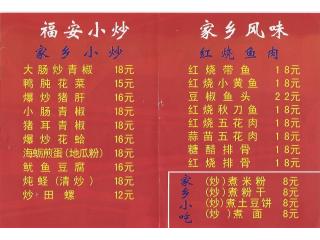 福安小炒
家乡小炒
大肠炒青椒 18元
鸭肫花菜 15元
爆炒猪肝 16元
小肠青椒 18元
猪耳青椒 18元
爆炒花蛤 16元
海蛎煎蛋(地瓜粉) 18元
鱿鱼豆腐 16元
炖蛏(清炒) 18元
炒田螺 12元
家乡风味
红烧鱼肉
红烧带鱼 18元
红烧小黄鱼 18元
豆椒鱼头 22元
红烧秋刀鱼 18元
红烧五花肉 18元
蒜苗五花肉 18元
糖醋排骨 18元
红烧排骨 18元
家乡小吃
(炒)煮米粉 8元
(炒)煮粉干 8元
(炒)煮土豆饼 8元
(炒)煮面 8元